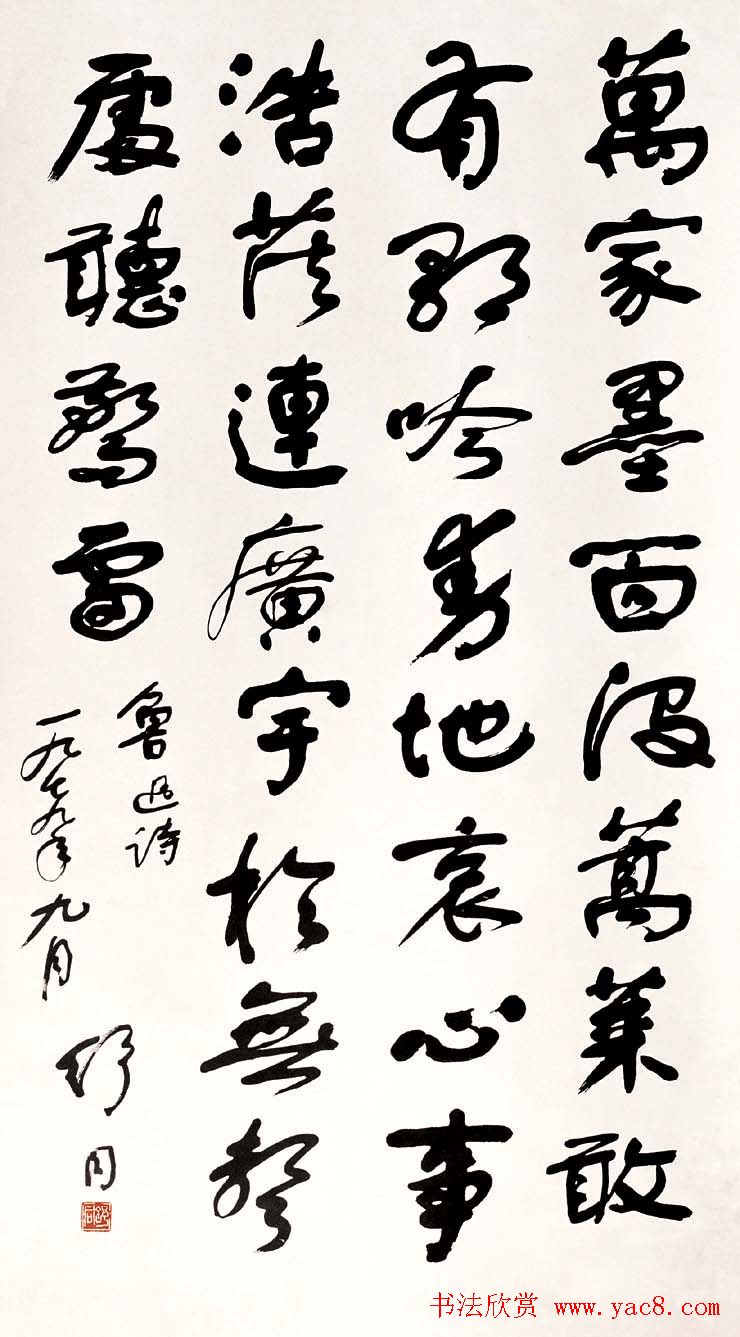 萬家墨面沒蒿萊敢
有歌吟動地哀心事
浩茫連廣宇於無聲
處聽驚雷
魯迅詩
一九七九年九月
舒同
舒同
书法欣赏 www.yac8.com